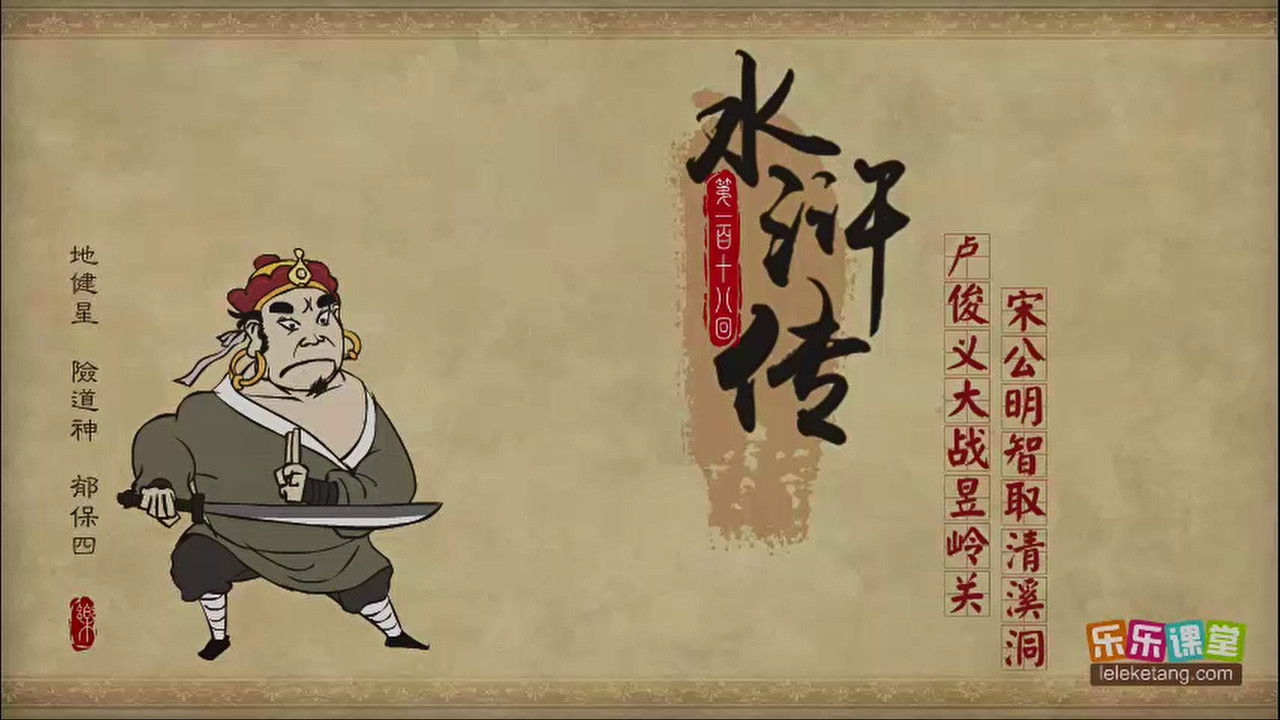 地健星 險道神 郁保四
樂
水浒传
第一百十八回
卢俊义大战昱岭关
宋公明智取清溪洞
乐乐课堂
leleketang.com